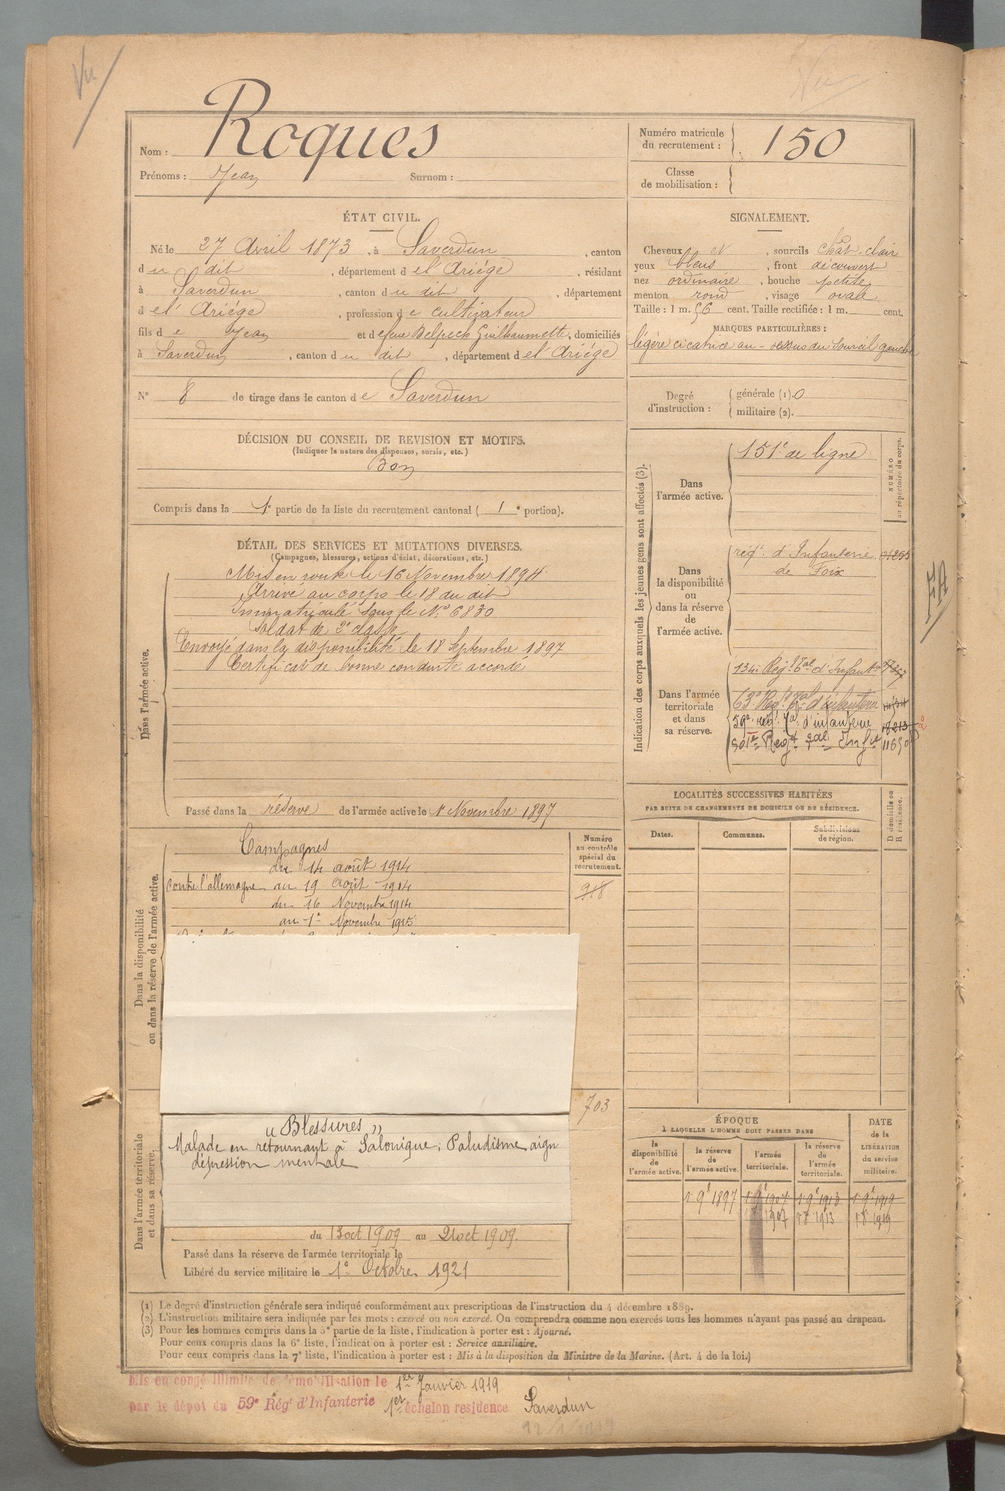 Vu
Nom : Roques
Prénoms : Jean Surnom :
Numéro matricule du recrutement : 150
Classe de mobilisation :
ÉTAT CIVIL.
Né le 27 Avril 1873, à Saverdun, canton
du dit, département de l'Ariége, résidant
à Saverdun, canton du dit, département
de l'Ariége, profession de cultivateur
fils de Jean et de feue Belpech Guilhaumette, domiciliés
à Saverdun, canton du dit, département de l'Ariége
N° 8 de tirage dans le canton de Saverdun
DÉCISION DU CONSEIL DE REVISION ET MOTIFS.
(Indiquer la nature des dispenses, sursis, etc.)
Bon
Compris dans la 1e partie de la liste du recrutement cantonal ( 1e portion).
SIGNALEMENT.
Cheveux et sourcils chât. clair
yeux bleus, front découvert
nez ordinaire, bouche petite
menton rond, visage ovale
Taille : 1 m. 56 cent. Taille rectifiée : 1 m. cent.
MARQUES PARTICULIÈRES :
légère cicatrice au-dessus du sourcil gauche
Degré d'instruction : générale (1). 0
militaire (2).
DÉTAIL DES SERVICES ET MUTATIONS DIVERSES.
(Campagnes, blessures, actions d'éclat, décorations, etc.)
Dans l'armée active.
Mis en route le 16 Novembre 1894
Arrivé au corps le 18 du dit
Immatriculé sous le N° 6830
Soldat de 2e classe
Envoyé dans la disponibilité le 18 Septembre 1897
Certificat de bonne conduite accordé
Passé dans la réserve de l'armée active le 1 Novembre 1897
Indication des corps auxquels les jeunes gens sont affectés (3).
NUMÉRO au répertoire du corps.
Dans l'armée active.
151e de ligne
Dans la disponibilité ou dans la réserve de l'armée active.
régt d'Infanterie
de Foix
Dans l'armée territoriale et dans sa réserve.
134e Régt Tal d'Infantie
63e Régt Tal d'infanterie
59e régt Tal d'infanterie 18213
Régt Tal Infie 11650
LOCALITÉS SUCCESSIVES HABITÉES
PAR SUITE DE CHANGEMENTS DE DOMICILE OU DE RÉSIDENCE.
Dates. Communes. Subdivisions de région. D domicile ou R résidence.
Dans la disponibilité ou dans la réserve de l'armée active.
Numéro au contrôle spécial du recrutement.
918
Campagnes
du 14 août 1914
contre l'allemagne au 19 Août 1914
du 16 Novembre 1914
au 1e Novembre 1915
703
"Blessures"
Malade en retournant à Salonique; Paludisme aign
dépression mentale
Dans l'armée territoriale et dans sa réserve.
du 13 oct 1909 au 21 oct 1909.
Passé dans la réserve de l'armée territoriale le
Libéré du service militaire le 1e Octobre 1921
ÉPOQUE
À LAQUELLE L'HOMME DOIT PASSER DANS
DATE de la LIBÉRATION du service militaire.
la disponibilité de l'armée active. la réserve de l'armée active. l'armée territoriale. la réserve de l'armée territoriale.
1 9e 1897 1 9e 1907 1 9e 1913 1 9e 1919
1907 1913 1919
(1) Le degré d'instruction générale sera indiqué conformément aux prescriptions de l'instruction du 4 décembre 1889.
(2) L'instruction militaire sera indiquée par les mots : exercé ou non exercé. On comprendra comme non exercés tous les hommes n'ayant pas passé au drapeau.
(3) Pour les hommes compris dans la 5e partie de la liste, l'indication à porter est : Ajourné.
Pour ceux compris dans la 6e liste, l'indication à porter est : Service auxiliaire.
Pour ceux compris dans la 7e liste, l'indication à porter est : Mis à la disposition du Ministre de la Marine. (Art. 4 de la loi.)
Mis en congé illimité de démobilisation le 1er Janvier 1919
par le dépôt du 59e Régt d'Infanterie 1er échelon residence Saverdun